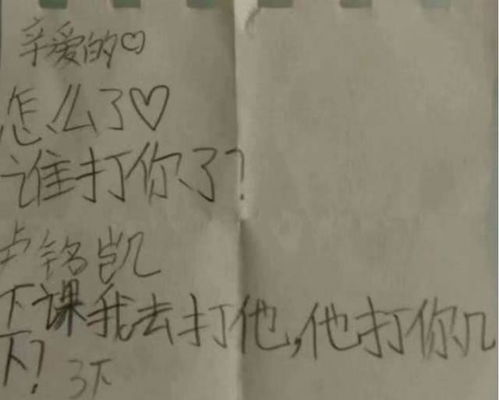 亲爱的♡
怎么了♡
谁打你了?
卢铭凯
下课我去打他,他打你几
下?
3下